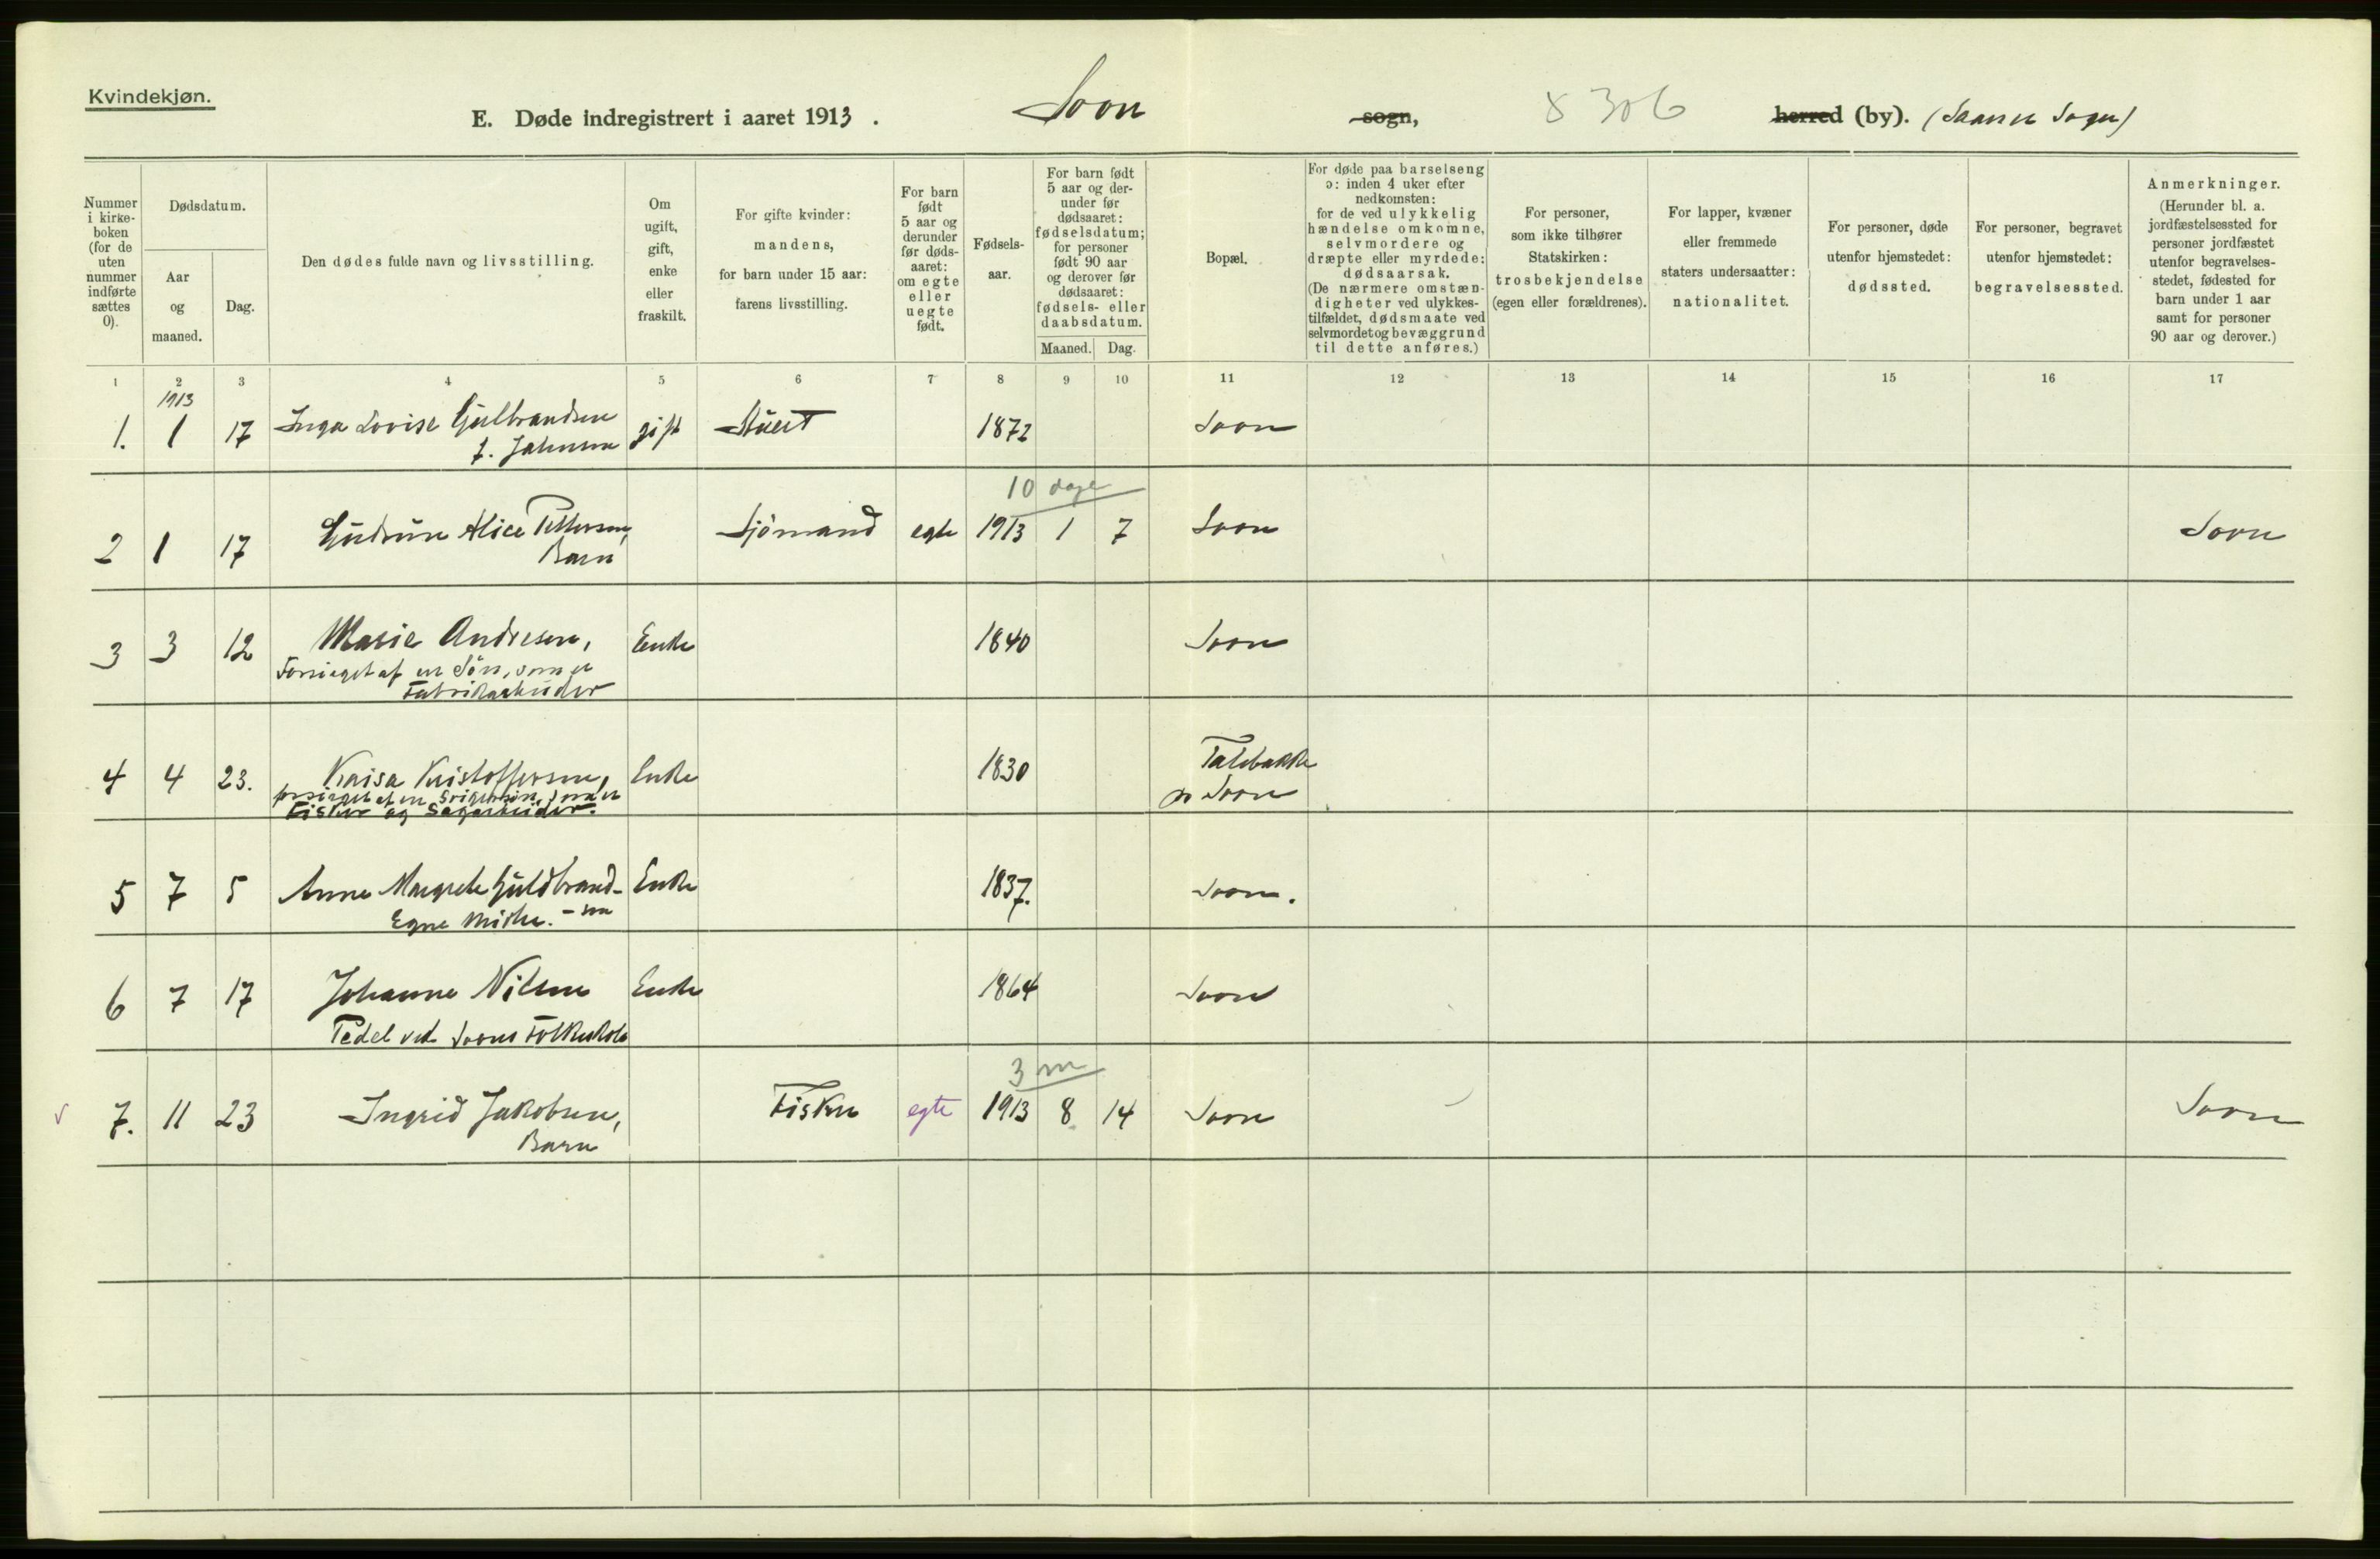 Kvindekjøn.
E. Døde indregistrert i aaret 1913 . Soon sogn, 8 306 herred (by). (Saaner Sogn)
Nummer i kirke- boken (for de uten nummer indførte sættes 0).
Dødsdatum.
Aar og maaned.
Dag.
Den dødes fulde navn og livsstilling.
Om ugift, gift, enke eller fraskilt.
For gifte kvinder: mandens, for barn under 15 aar: farens livsstilling.
For barn født 5 aar og derunder før døds- aaret: om egte eller uegte født.
Fødsels- aar.
For barn født 5 aar og der- under før dødsaaret: fødselsdatum; for personer født 90 aar og derover før dødsaaret: fødsels- eller daabsdatum.
Maaned. Dag.
Bopæl.
For døde paa barselseng ɔ: inden 4 uker efter nedkomsten: for de ved ulykkelig hændelse omkomne, selvmordere og dræpte eller myrdede: dødsaarsak. (De nærmere omstæn- digheter ved ulykkes- tilfældet, dødsmaate ved selvmordet og bevæggrund til dette anføres.)
For personer, som ikke tilhører Statskirken: trosbekjendelse (egen eller forældrenes).
For lapper, kvæner eller fremmede staters undersaatter: nationalitet.
For personer, døde utenfor hjemstedet: dødssted.
For personer, begravet utenfor hjemstedet: begravelsessted.
Anmerkninger. (Herunder bl. a. jordfæstelsessted for personer jordfæstet utenfor begravelses- stedet, fødested for barn under 1 aar samt for personer 90 aar og derover.)
1 2 3 4 5 6 7 8 9 10 11 12 13 14 15 16 17
1913
1. 1 17 Inga Lovise Gulbrandsen gift Stuert 1872 Soon
f. Johnsen
10 dage
2 1 17 Gudrun Alice Pettersen, Sjömand egte 1913 1 7 Soon Soon
Barn
3 3 12 Marie Andresen, Enke 1840 Soon
Forsörget af en Sön, som er
Fabrikarbeider
4 4 23. Kaisa Kristoffersen, Enke 1830 Talebakke
forsörget af en Svigersön, som er
Fisker og Sagarbeider.
pr Soon
5 7 5 Anne Margrete Guldbrand- Enke 1837. Soon.
Egne Midler. - sen
6 7 17 Johanne Nilsen Enke 1864 Soon
Pedel ved Soons Folkeskole
3 m
7. 11 23 Ingrid Jakobsen, Fisker egte 1913 8 14 Soon Soon
Barn